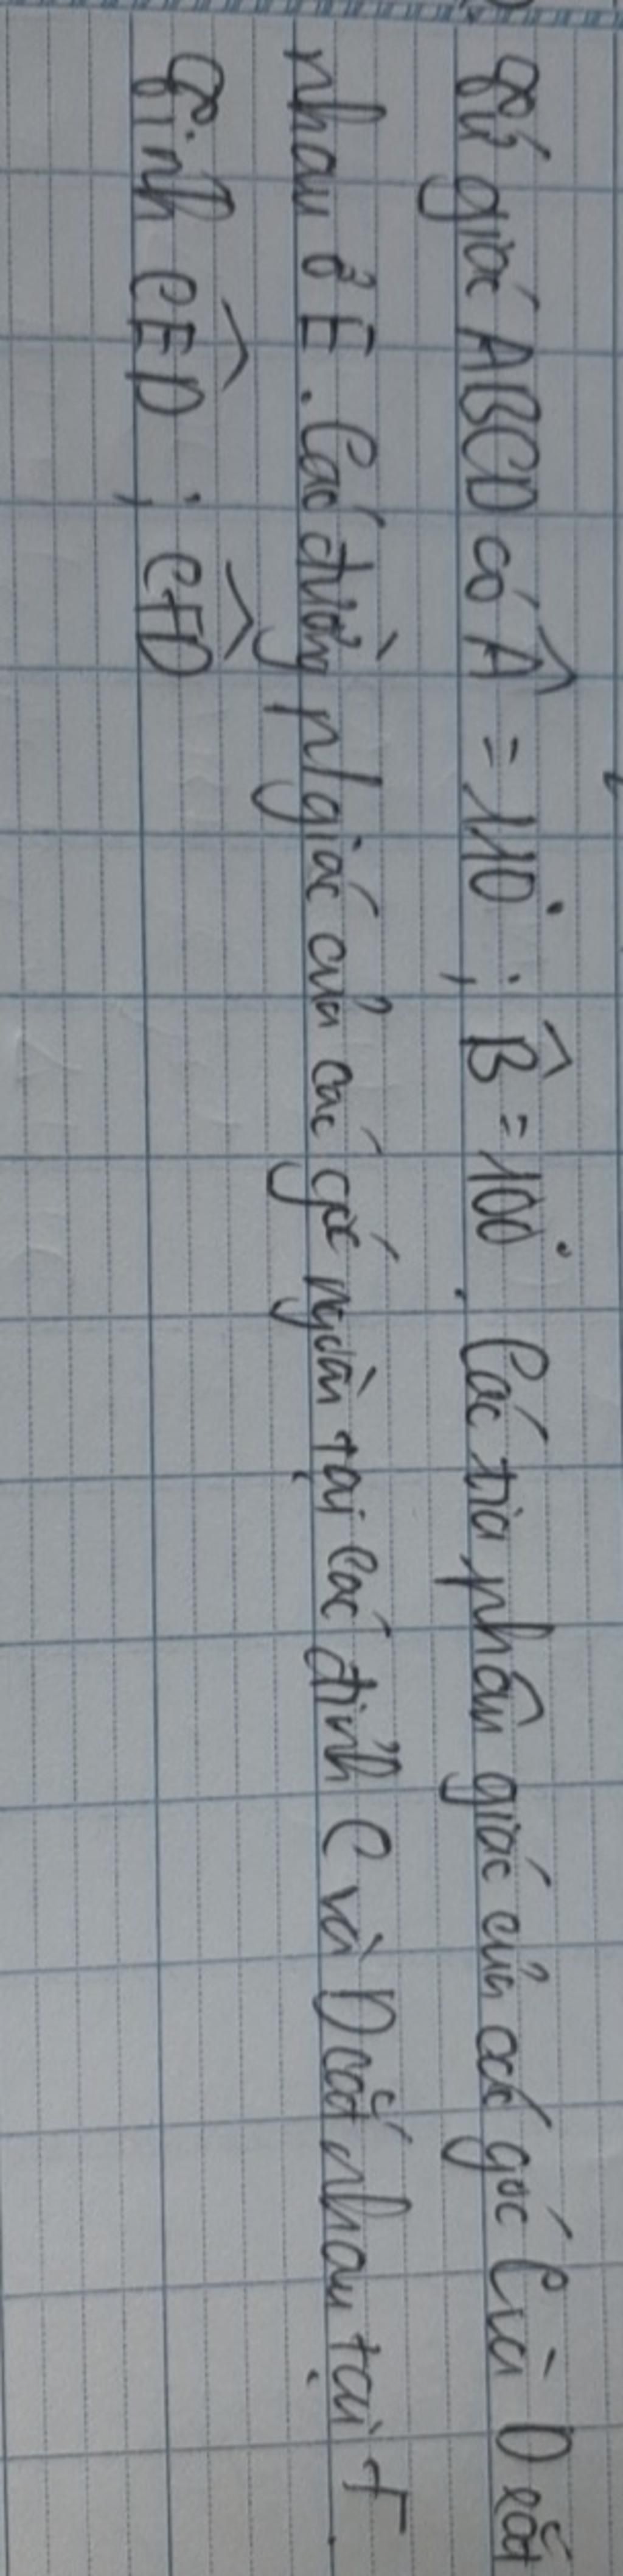 Tứ giác ABCD có Â = 110°; B̂ = 100°. Các tia phân giác của các góc C và D cắt
nhau ở E. Các đường p/giác của các góc ngoài tại các đỉnh C và D cắt nhau tại F.
Tính CÊD; CF̂D